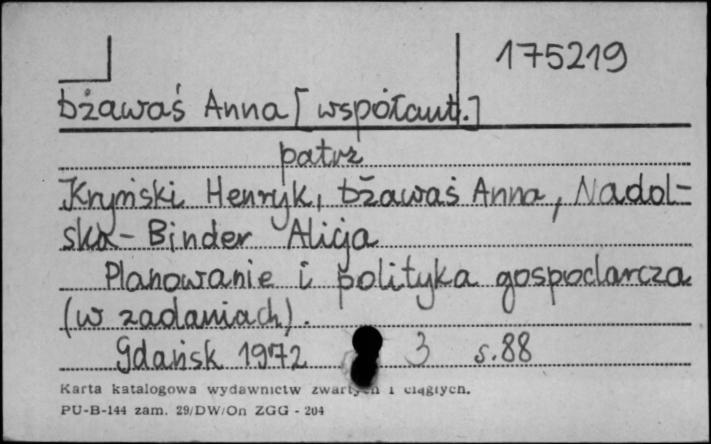 175219
Łżawaś Anna [współaut.]
patrz
Kryński Henryk, Łżawaś Anna, Nadol-
ska-Binder Alicja
Planowanie i polityka gospodarcza
(w zadaniach).
Gdańsk 1972 3 s.88
Karta katalogowa wydawnictw zwartych i ciągłych.
PU-B-144 zam. 29/DW/On ZGG - 204